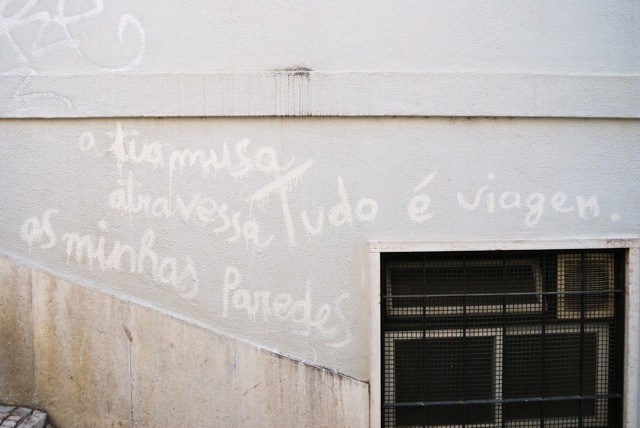 a tia musa
atravessa
as minhas Paredes
Tudo é viagem.